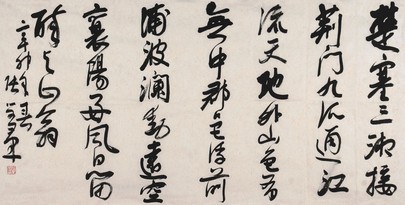 楚塞三湘接
荆门九派通江
流天地外山色有
無中郡邑浮前
浦波澜動遠空
襄陽好風日留
醉与山翁
辛卯年